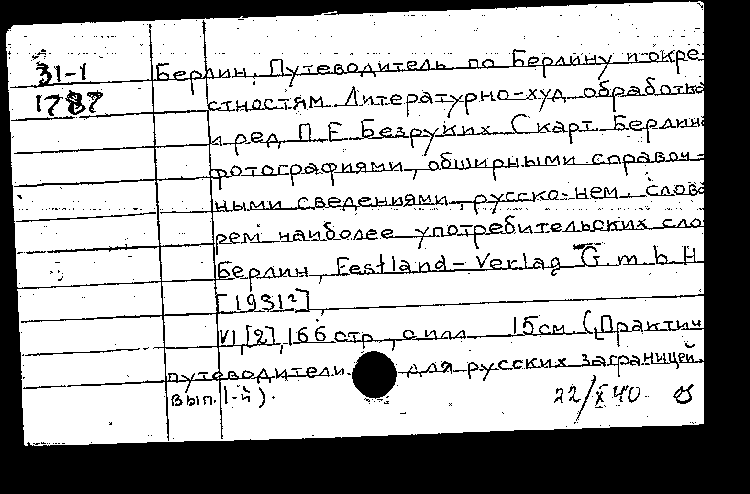 31-1
1787
Берлин. Путеводитель по Берлину и окре
стностям. Литературно-худ. обработка
и ред. П. Е. Безруких. С карт. Берлина
фотографиями, обширными справоч-
ными сведениями, русско-нем. слова
рем наиболее употребительских сло
Берлин, Festland-Verlag G.m.b.H
[1931?],
VI,[2],166 стр., с илл. 15см. („Практич
путеводители для русских заграницей.
вып. 1-й).
22/X 40.